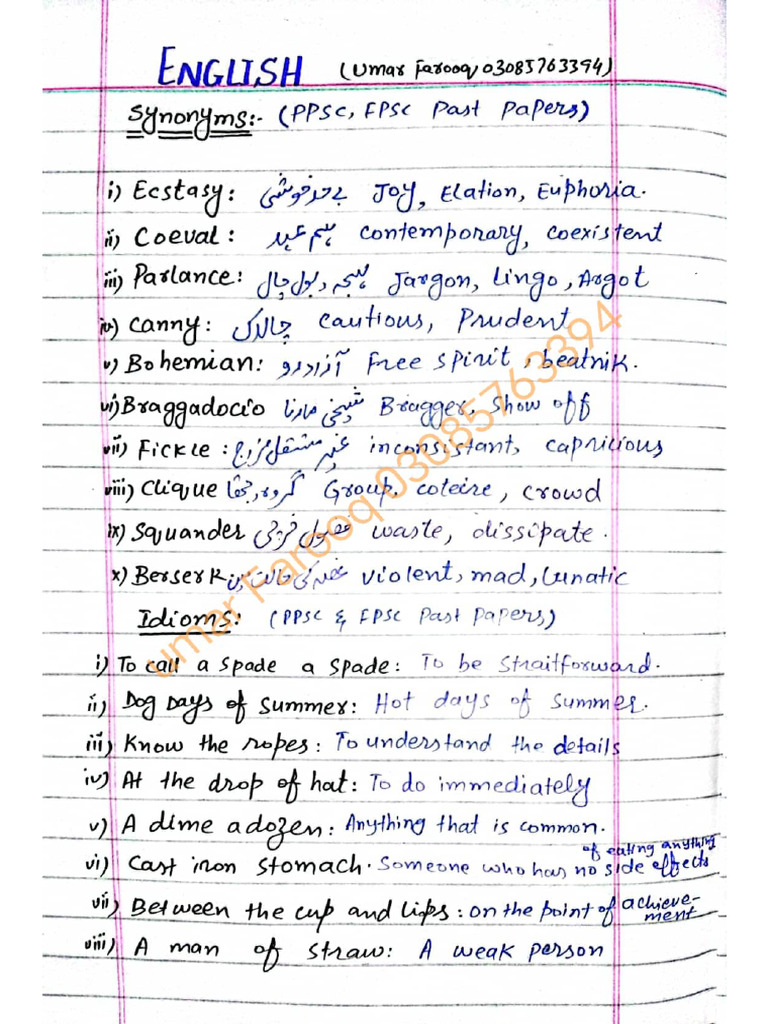 ENGLISH (Umar Farooq 03085763394)
Synonyms:- (PPSC, FPSC Past Papers)
i) Ecstasy: بے حد خوشی Joy, Elation, Euphoria.
ii) Coeval: ہم عہد contemporary, coexistent
iii) Parlance: لہجہ، بول چال Jargon, Lingo, Argot
iv) Canny: چالاک cautious, Prudent
v) Bohemian: آزاد رو Free spirit, beatnik.
vi) Braggadocio شیخی مارنا Bragger, Show off
vii) Fickle: غیر مستقل مزاج inconsistant, capricious
viii) Clique گروہ، جتھا Group, coteire, crowd
ix) Squander فضول خرچی waste, dissipate.
x) Berserk غصہ کی حالت میں violent, mad, Lunatic
Idioms: (PPSC & FPSC Past Papers,)
i) To call a spade a spade: To be straitforward.
ii) Dog Days of Summer: Hot days of summer.
iii) Know the ropes: To understand the details
iv) At the drop of hat: To do immediately
v) A dime a dozen: Anything that is common.
vi) Cast iron stomach. Someone who has no side effects of eating anything
vii) Between the cup and lips: on the point of achieve-
ment
viii) A man of straw: A weak person
umar Farooq 03085763394